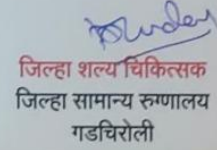 जिल्हा शल्य चिकित्सक
जिल्हा सामान्य रुग्णालय
गडचिरोली